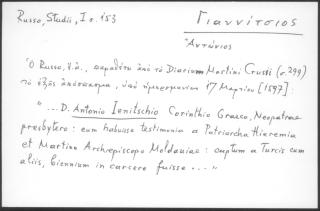 Russo, Studii, I σ. 153
Γιαννίτσιος
Ἀντώνιος
Ὁ Russo, ἔ.ἀ., παραθέτει ἀπὸ τὸ Diarium Martini Crusii (σ. 299)
τὸ ἑξῆς ἀπόσπασμα, ὑπὸ ἡμερομηνίαν 17 Μαρτίου [1597]:
"...D. Antonio Ienitschio Corinthio Graeco, Neopatrae
presbytero: eum habuisse testimonia a Patriarcha Hieremia
et Martino Archiepiscopo Moldaviae: captum a Turcis cum
aliis, biennium in carcere fuisse ..."